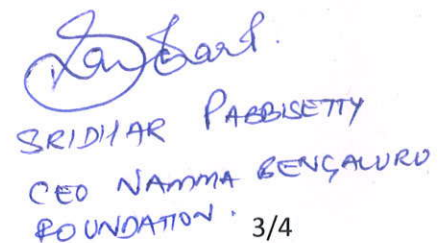 SRIDHAR PABBISETTY
CEO NAMMA BENGALURU
FOUNDATION. 3/4